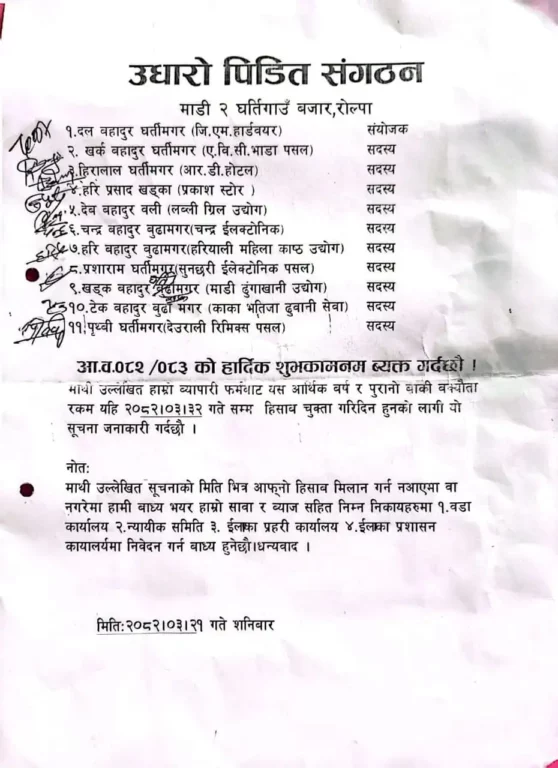 उधारो पिडित संगठन
माडी २ घर्तिगाउँ बजार,रोल्पा
१.दल बहादुर घर्तीमगर (जि.एम.हार्डवयर) संयोजक
२. खर्क बहादुर घर्तीमगर (ए.बि.सी.भाडा पसल) सदस्य
३.हिरालाल घर्तीमगर (आर.डी.होटल) सदस्य
४.हरि प्रसाद खड्का (प्रकाश स्टोर ) सदस्य
५.देव बहादुर वली (लब्ली ग्रिल उद्योग) सदस्य
६.चन्द्र बहादुर बुढामगर(चन्द्र ईलक्टोनिक) सदस्य
७.हरि बहादुर बुढामगर(हरियाली महिला काष्ठ उद्योग) सदस्य
८.प्रशाराम घर्तीमगर(सुनछरी ईलेक्टोनिक पसल) सदस्य
९.खड्क बहादुर बुढामगर (माडी ढुंगाखानी उद्योग) सदस्य
१०.टेक बहादुर बुढा मगर (काका भतिजा ढुवानी सेवा) सदस्य
११.पृथ्वी घर्तीमगर(देउराली रिमिक्स पसल) सदस्य
आ.व.०८२ /०८३ को हार्दिक शुभकामनम ब्यक्त गर्दछौ ।
माथी उल्लेखित हाम्रो ब्यापारी फर्मबाट यस आर्थिक बर्ष र पुरानो बाकी बक्यौता
रकम यहि २०८२।०३।३२ गते सम्म हिसाब चुक्ता गरिदिन हुनका लागी यो
सूचना जनाकारी गर्दछौ ।
नोतः
माथी उल्लेखित सूचनाको मिति भित्र आफ्नो हिसाब मिलान गर्न नआएमा वा
नगरेमा हामी बाध्य भयर हाम्रो सावा र ब्याज सहित निम्न निकायहरुमा १.वडा
कार्यालय २.न्यायीक समिति ३. ईलाका प्रहरी कार्यालय ४.ईलाका प्रशासन
कायालर्यमा निवेदन गर्न बाध्य हुनेछौ।धन्यवाद ।
मिति:२०८२।०३।२१ गते शनिबार